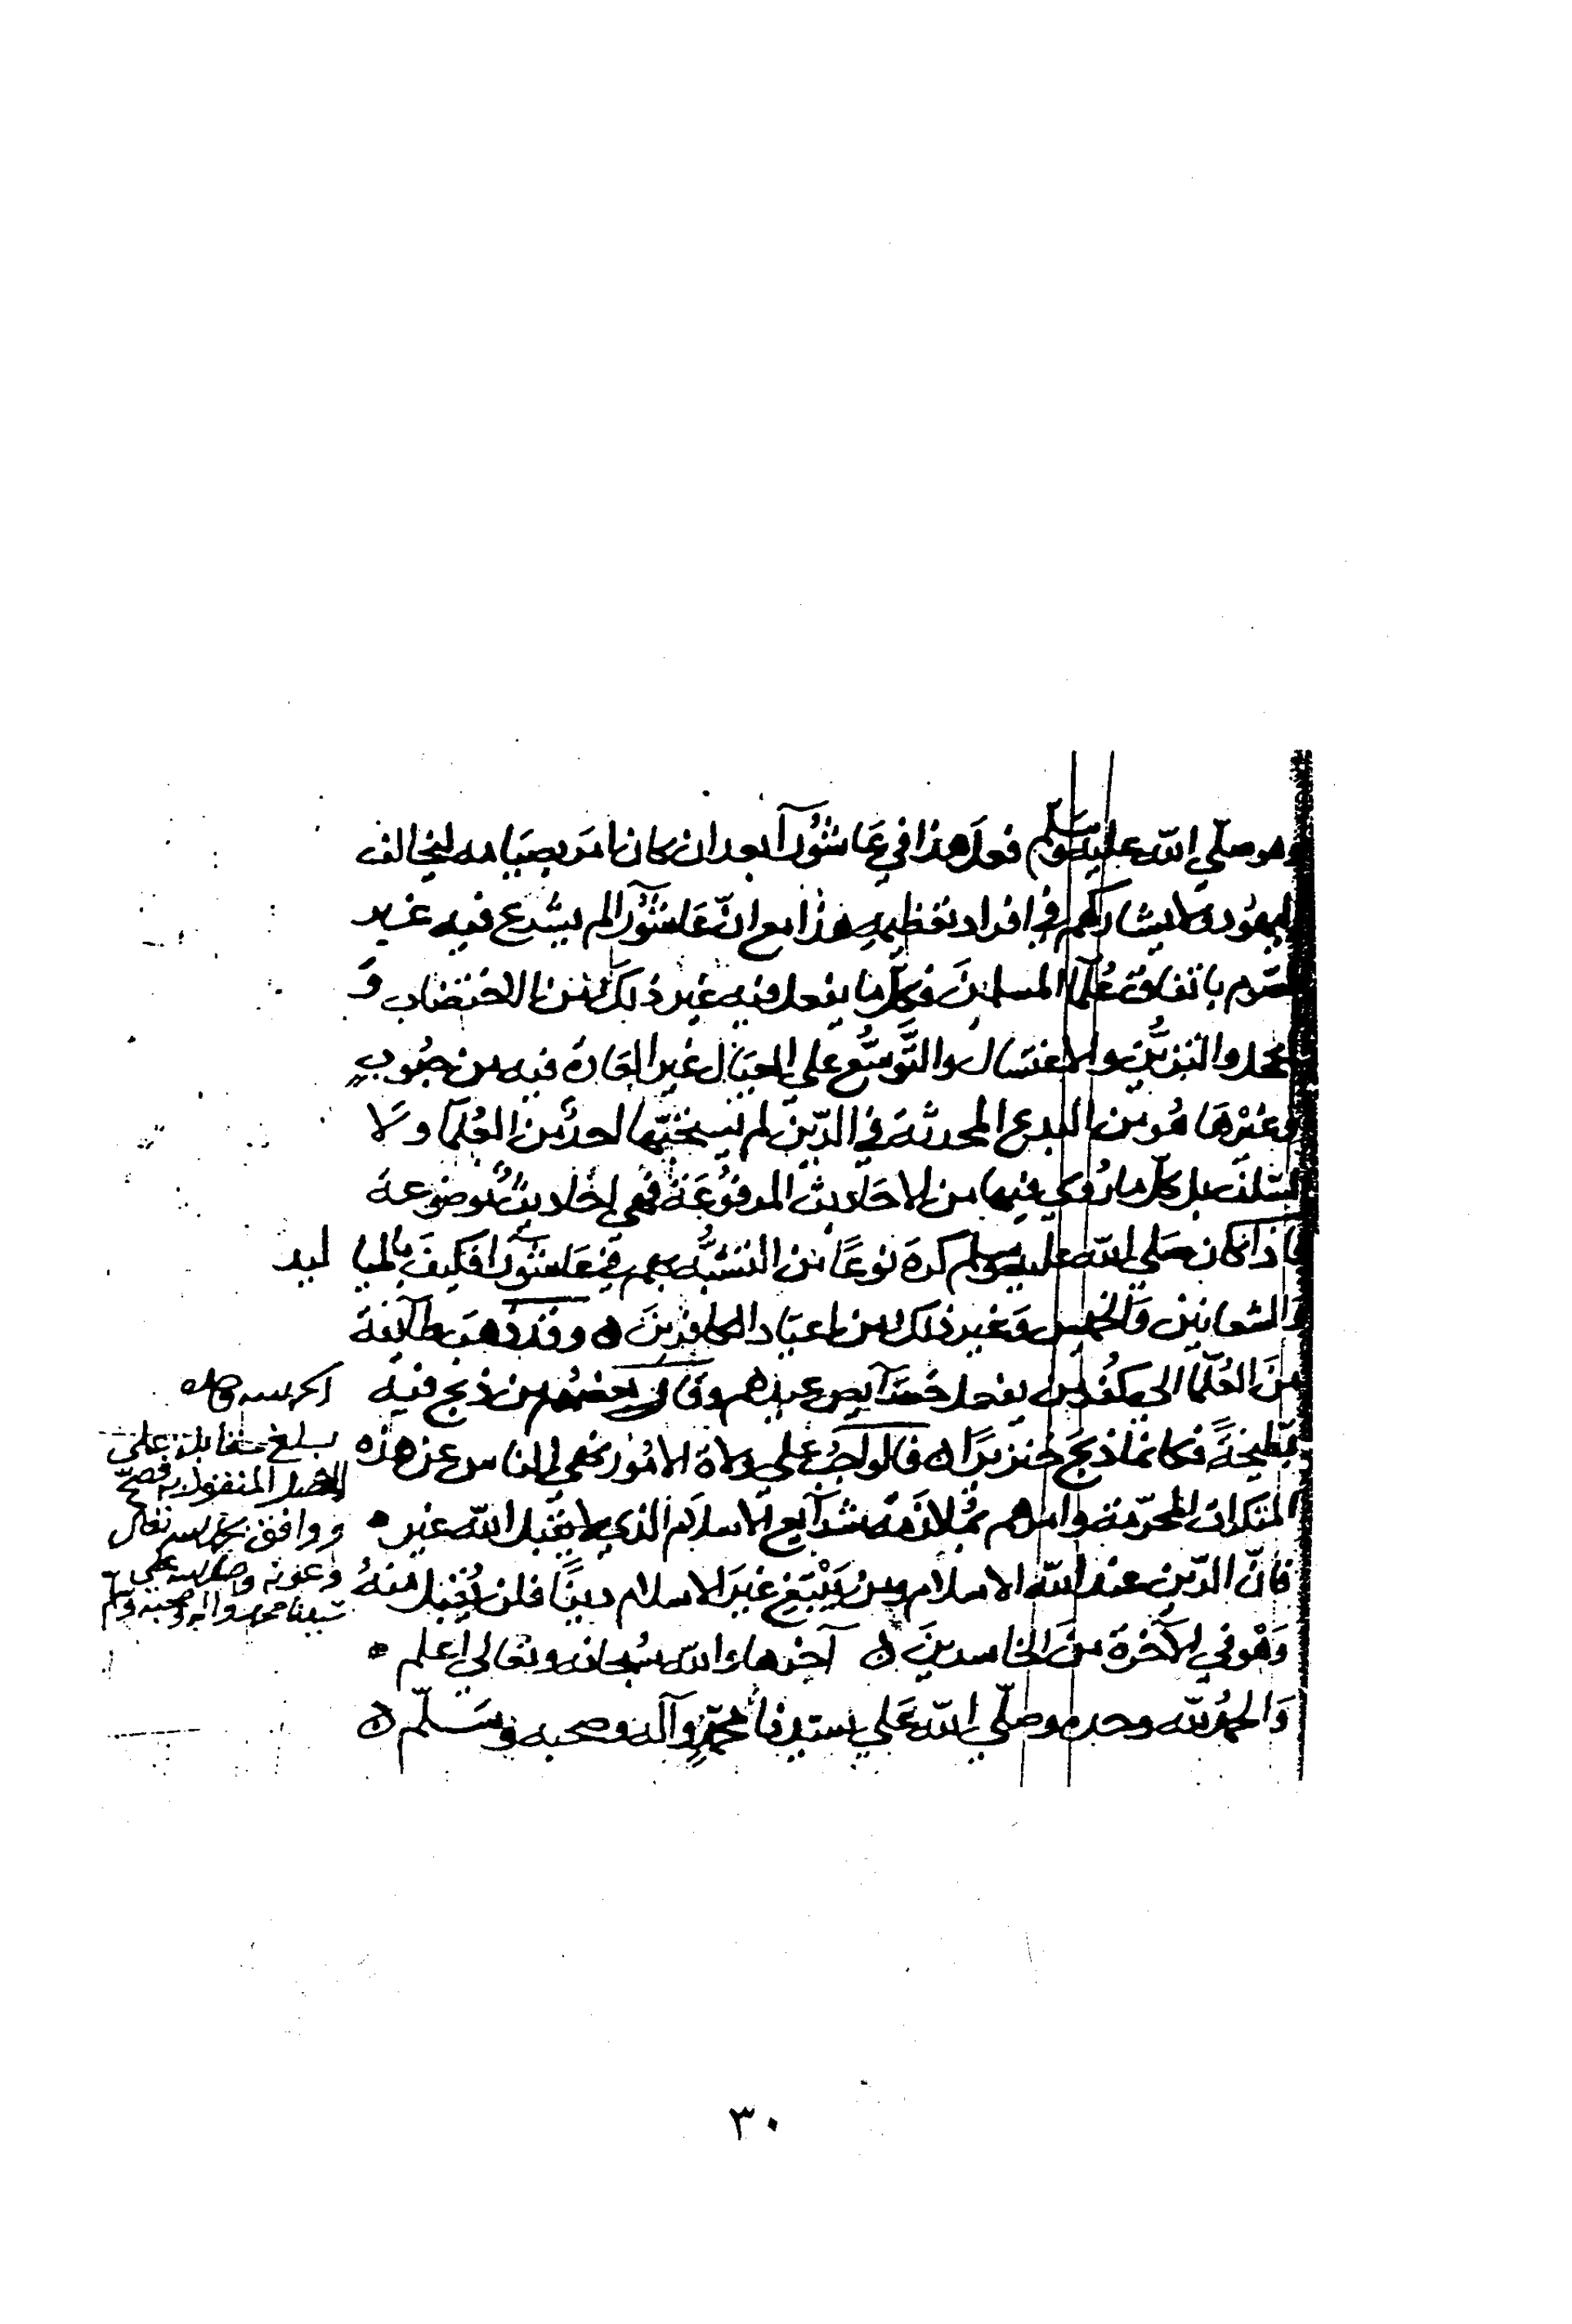 وهو صلي الله عليه وسلم فعل هذا في عَاشُورآ بعد ان كان امر بصيَامه ليخالف
اليهود ولا يشاركهم في افراد تعظيمهِ هذا مع انّ عَاشُورآ لم يشرع فيه غير
الصّوم باتفاق عُلمآ المسلمين فكلّ ما يفعل فيه غير ذلك من الاختضاب وَ
الكحل والتزيُّن والاغتسال والتَّوسُّع علي العيَال غير العَادة فيه من حبُوبٍ
وغيْرهَا هُو من البدع المحدثة في الدّين لم يستحبّها احدٌ من العُلمآ ولا
السّلف بل كلّ ما رُوي فيها من الاحَاديث المرفوُعَة فهي احَاديثُ مُوضوعة
فاذا كان صَلي الله عليه وسلم كره نوعًا من التشبُّه بهم في عَاشُورا فكيفَ بالميا ليد
وَالشعانين وَالخميس وَغير ذلك من اعيَاد الكافرينَ ه وقد ذهبَ طآئفة
منَ العُلمآ الي كفر من يفعل خصَآيص عيدهم وقال بعضهُم من ذبح فيه
بّطيخةً فكانما ذبحَ خنزيرًا ه فالواجبُ علي ولاة الامُور نهي الناس عن هذه
المنكرات المحَرّمة وامرهم بمُلازمَة شرآيع الاسلام الذي لا يقبل الله غيره
فانّ الدّين عند الله الاسلام ومن يَبْتَغِ غيَر الاسلام دينًا فلن يُقبل منهُ
وَهو في الآخرة منَ الخاسرينَ ه آخرها والله سُبحانه وتعالي اعلم ه
وَالحمدُ لله وحده وصلّي الله عَلي سيّدنا محمّدٍ وآله وصحبه وسَلّم ه
الحمد لله
بلغ مقابلة علي
الاصل المنقول منه فصحّ
ووافق بحمد الله تعالى
وعونه وصلى الله على
سيدنا محمد واله وصحبه وسلم
٣٠